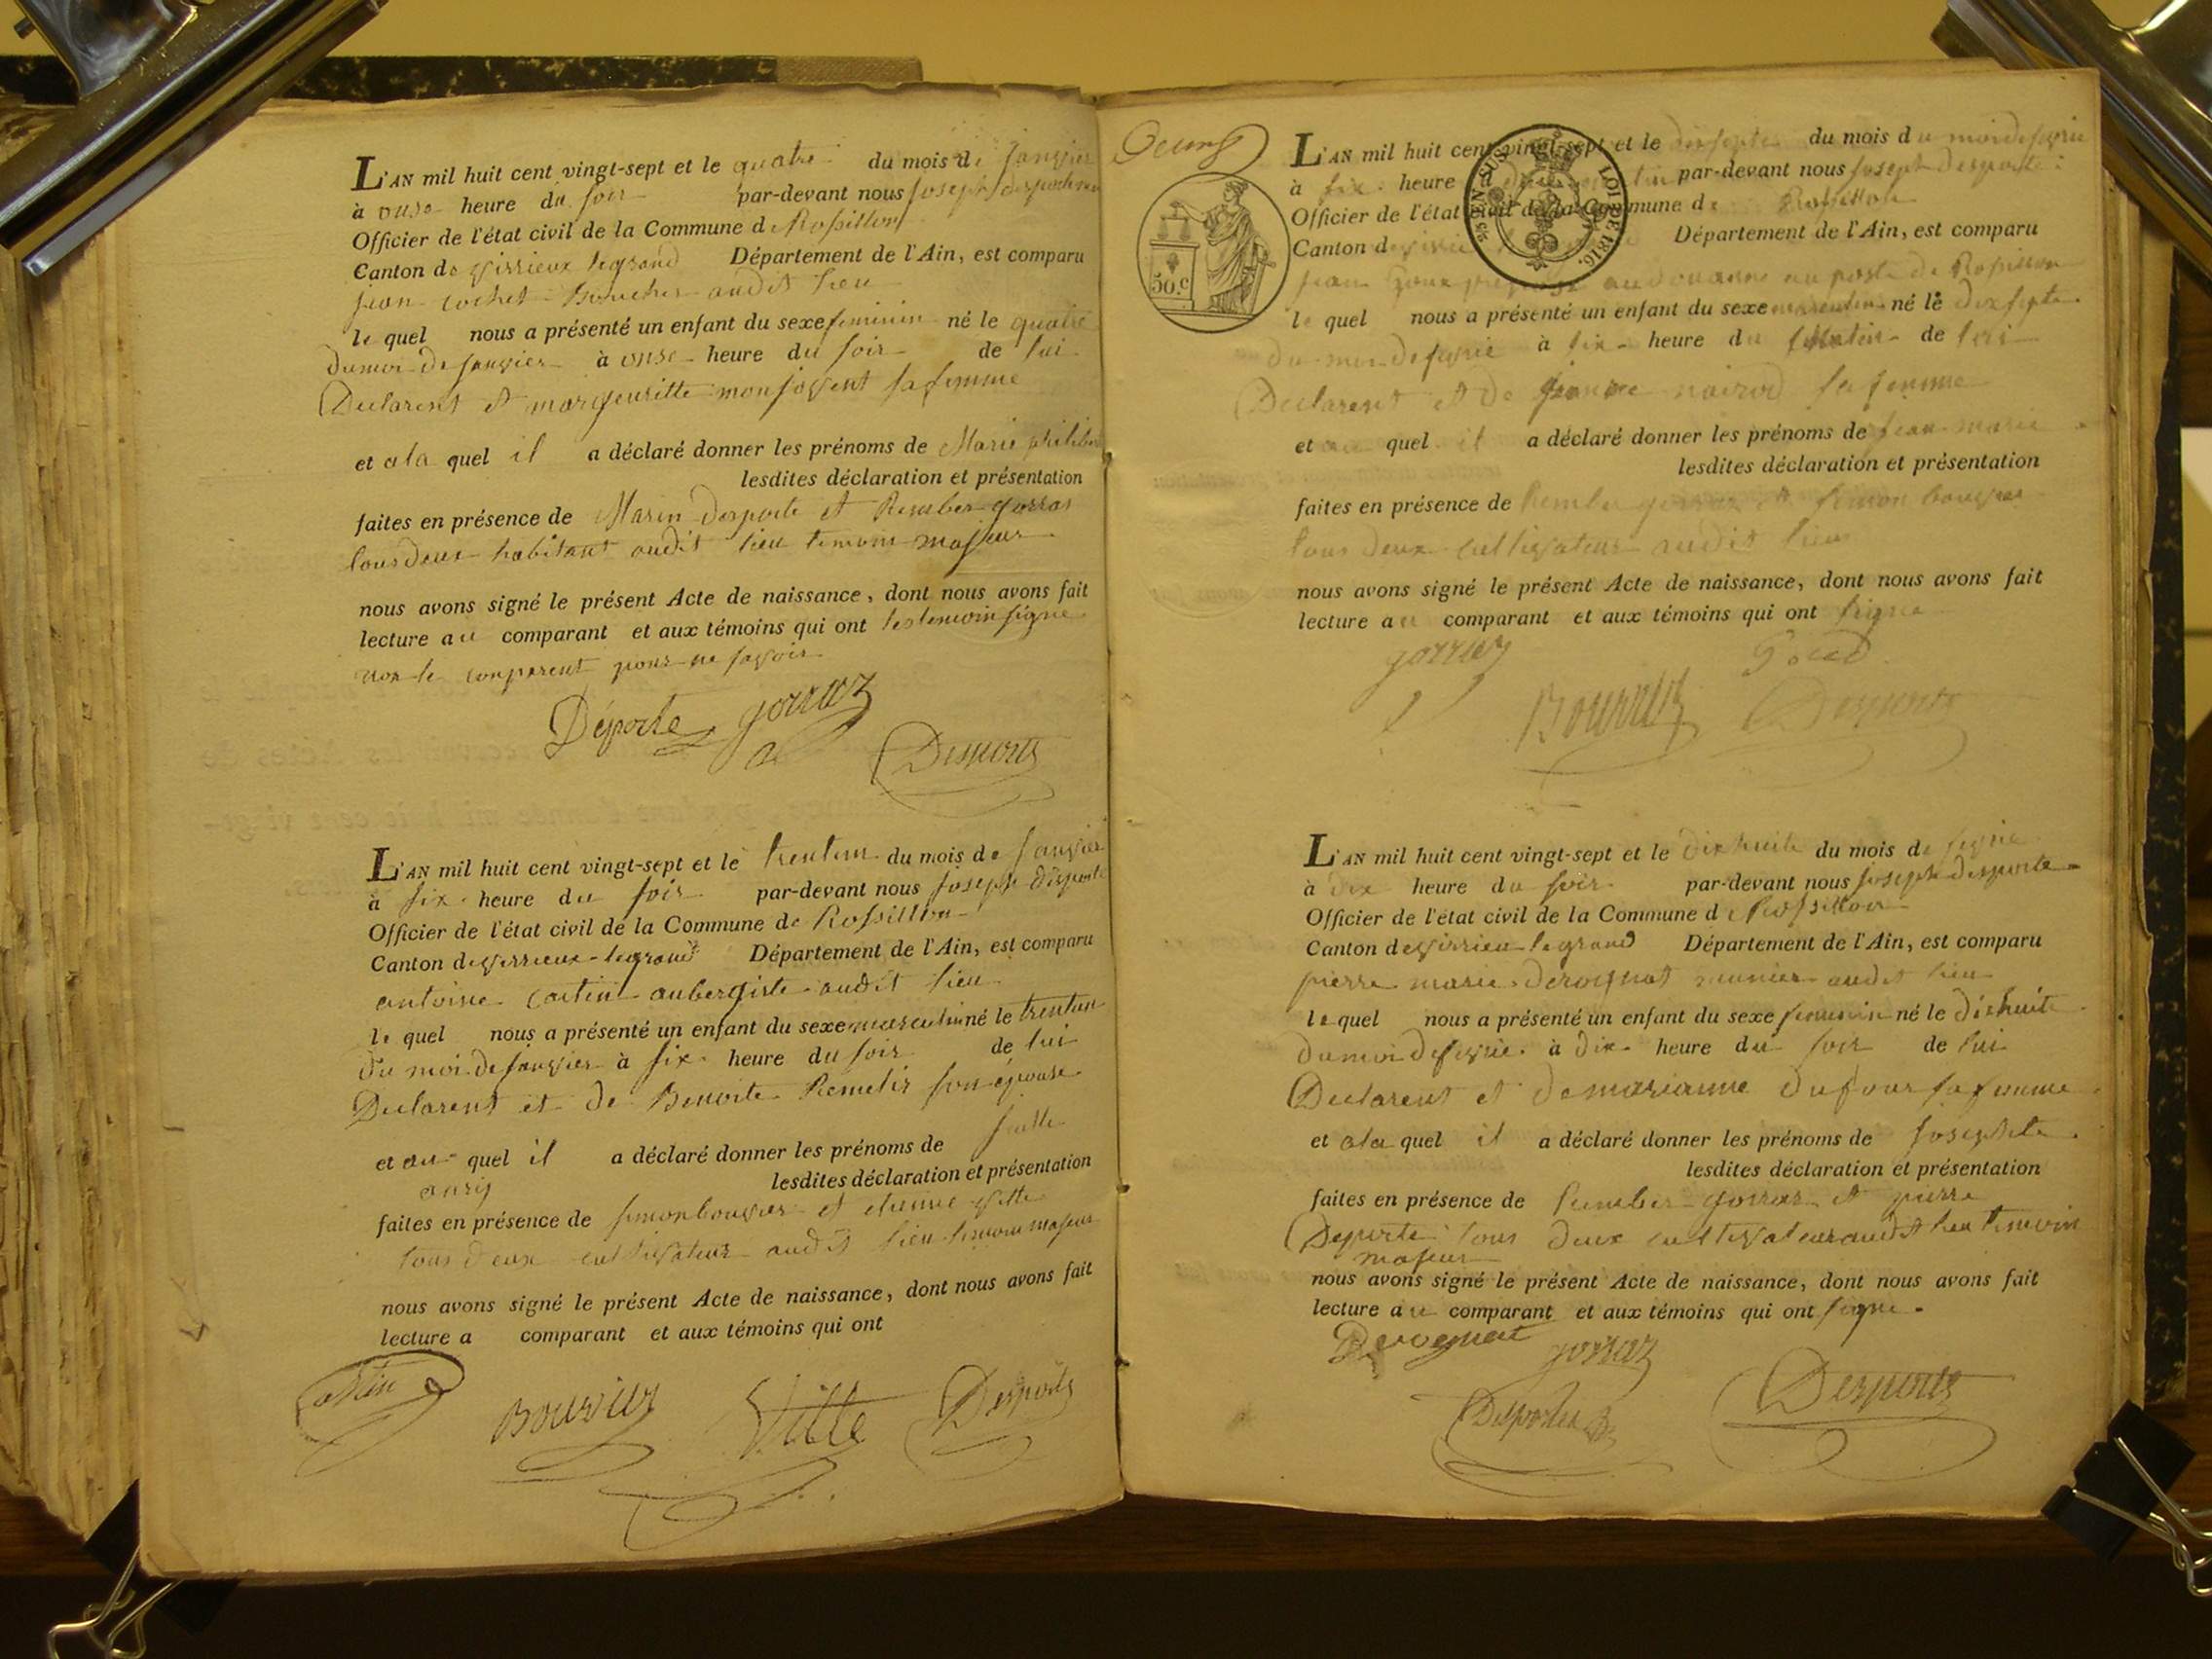 L'AN mil huit cent vingt-sept et le quatre du mois de janvier
à onse heure du soir par-devant nous joseph
Officier de l'état civil de la Commune de Rossillon
Canton de virrieux legrand Département de l'Ain, est comparu
jean cochet audit lieu
le quel nous a présenté un enfant du sexe feminin né le quatre
du moi de janvier à onse heure du soir de lui
Declarent et margeuritte monjovent sa femme
et a la quel il a déclaré donner les prénoms de Marie
lesdites déclaration et présentation
faites en présence de Marin desporte et gorras
tous deux habitant audit lieu temoin majeur
nous avons signé le présent Acte de naissance, dont nous avons fait
lecture au comparant et aux témoins qui ont les temoin signe
non le comparent pour ne savoir
Déporte gorraz
Desporte
L'AN mil huit cent vingt-sept et le trentun du mois de janvier
à six heure du soir par-devant nous joseph desporte
Officier de l'état civil de la Commune de Rossillon
Canton de virrieux legrand Département de l'Ain, est comparu
antoine aubergiste audit lieu
le quel nous a présenté un enfant du sexe masculin né le trentun
du moi de janvier à six heure du soir de lui
Declarent et de Benoite son épouse
et au quel il a déclaré donner les prénoms de
lesdites déclaration et présentation
faites en présence de simon bouvier et etienne vitte
tous deux cultivateur audit lieu temoin majeur
nous avons signé le présent Acte de naissance, dont nous avons fait
lecture a comparant et aux témoins qui ont
Bouvier Vitte Desporte
50.C
25 EN SUS
LOI DE 1816.
L'AN mil huit cent vingt-sept et le dixsepte du mois du moi de fevrie
à six heure du par-devant nous joseph desporte
Officier de l'état civil de la Commune de Rossillon
Canton de Département de l'Ain, est comparu
jean au douanne au poste de Rossillon
le quel nous a présenté un enfant du sexe masculin né le dixsepte
du moi de fevrie à six heure du matin de lui
Declarent et de sa femme
et au quel il a déclaré donner les prénoms de jean marie
lesdites déclaration et présentation
faites en présence de gorraz et simon bouvier
tous deux cultivateur audit lieu
nous avons signé le présent Acte de naissance, dont nous avons fait
lecture au comparant et aux témoins qui ont signe
gorraz
Bouvier Desporte
L'AN mil huit cent vingt-sept et le dixhuite du mois de fevrie
à dix heure du soir par-devant nous joseph desporte
Officier de l'état civil de la Commune de Rossillon
Canton de virrieu legrand Département de l'Ain, est comparu
pierre marie derognat munier audit lieu
le quel nous a présenté un enfant du sexe feminin né le dixhuite
du moi de fevrie à dix heure du soir de lui
Declarent et de marianne dufour sa femme
et a la quel il a déclaré donner les prénoms de josephte
lesdites déclaration et présentation
faites en présence de gorraz et pierre
Desporte tous deux cultivateur audit lieu temoin
majeur
nous avons signé le présent Acte de naissance, dont nous avons fait
lecture au comparant et aux témoins qui ont signe.
Derognat gorraz
Desportes Desporte